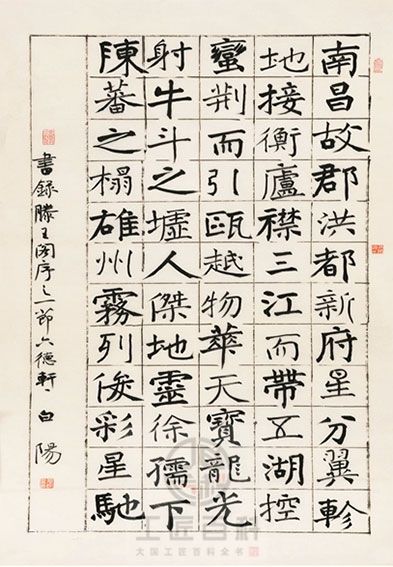 南昌故郡洪都新府星分翼軫
地接衡廬襟三江而帶五湖控
蠻荆而引甌越物華天寶龍光
射牛斗之墟人傑地靈徐孺下
陳蕃之榻雄州霧列俊彩星馳
書録滕王閣序之一節六德軒白陽
工匠百科
大国工匠百科全书